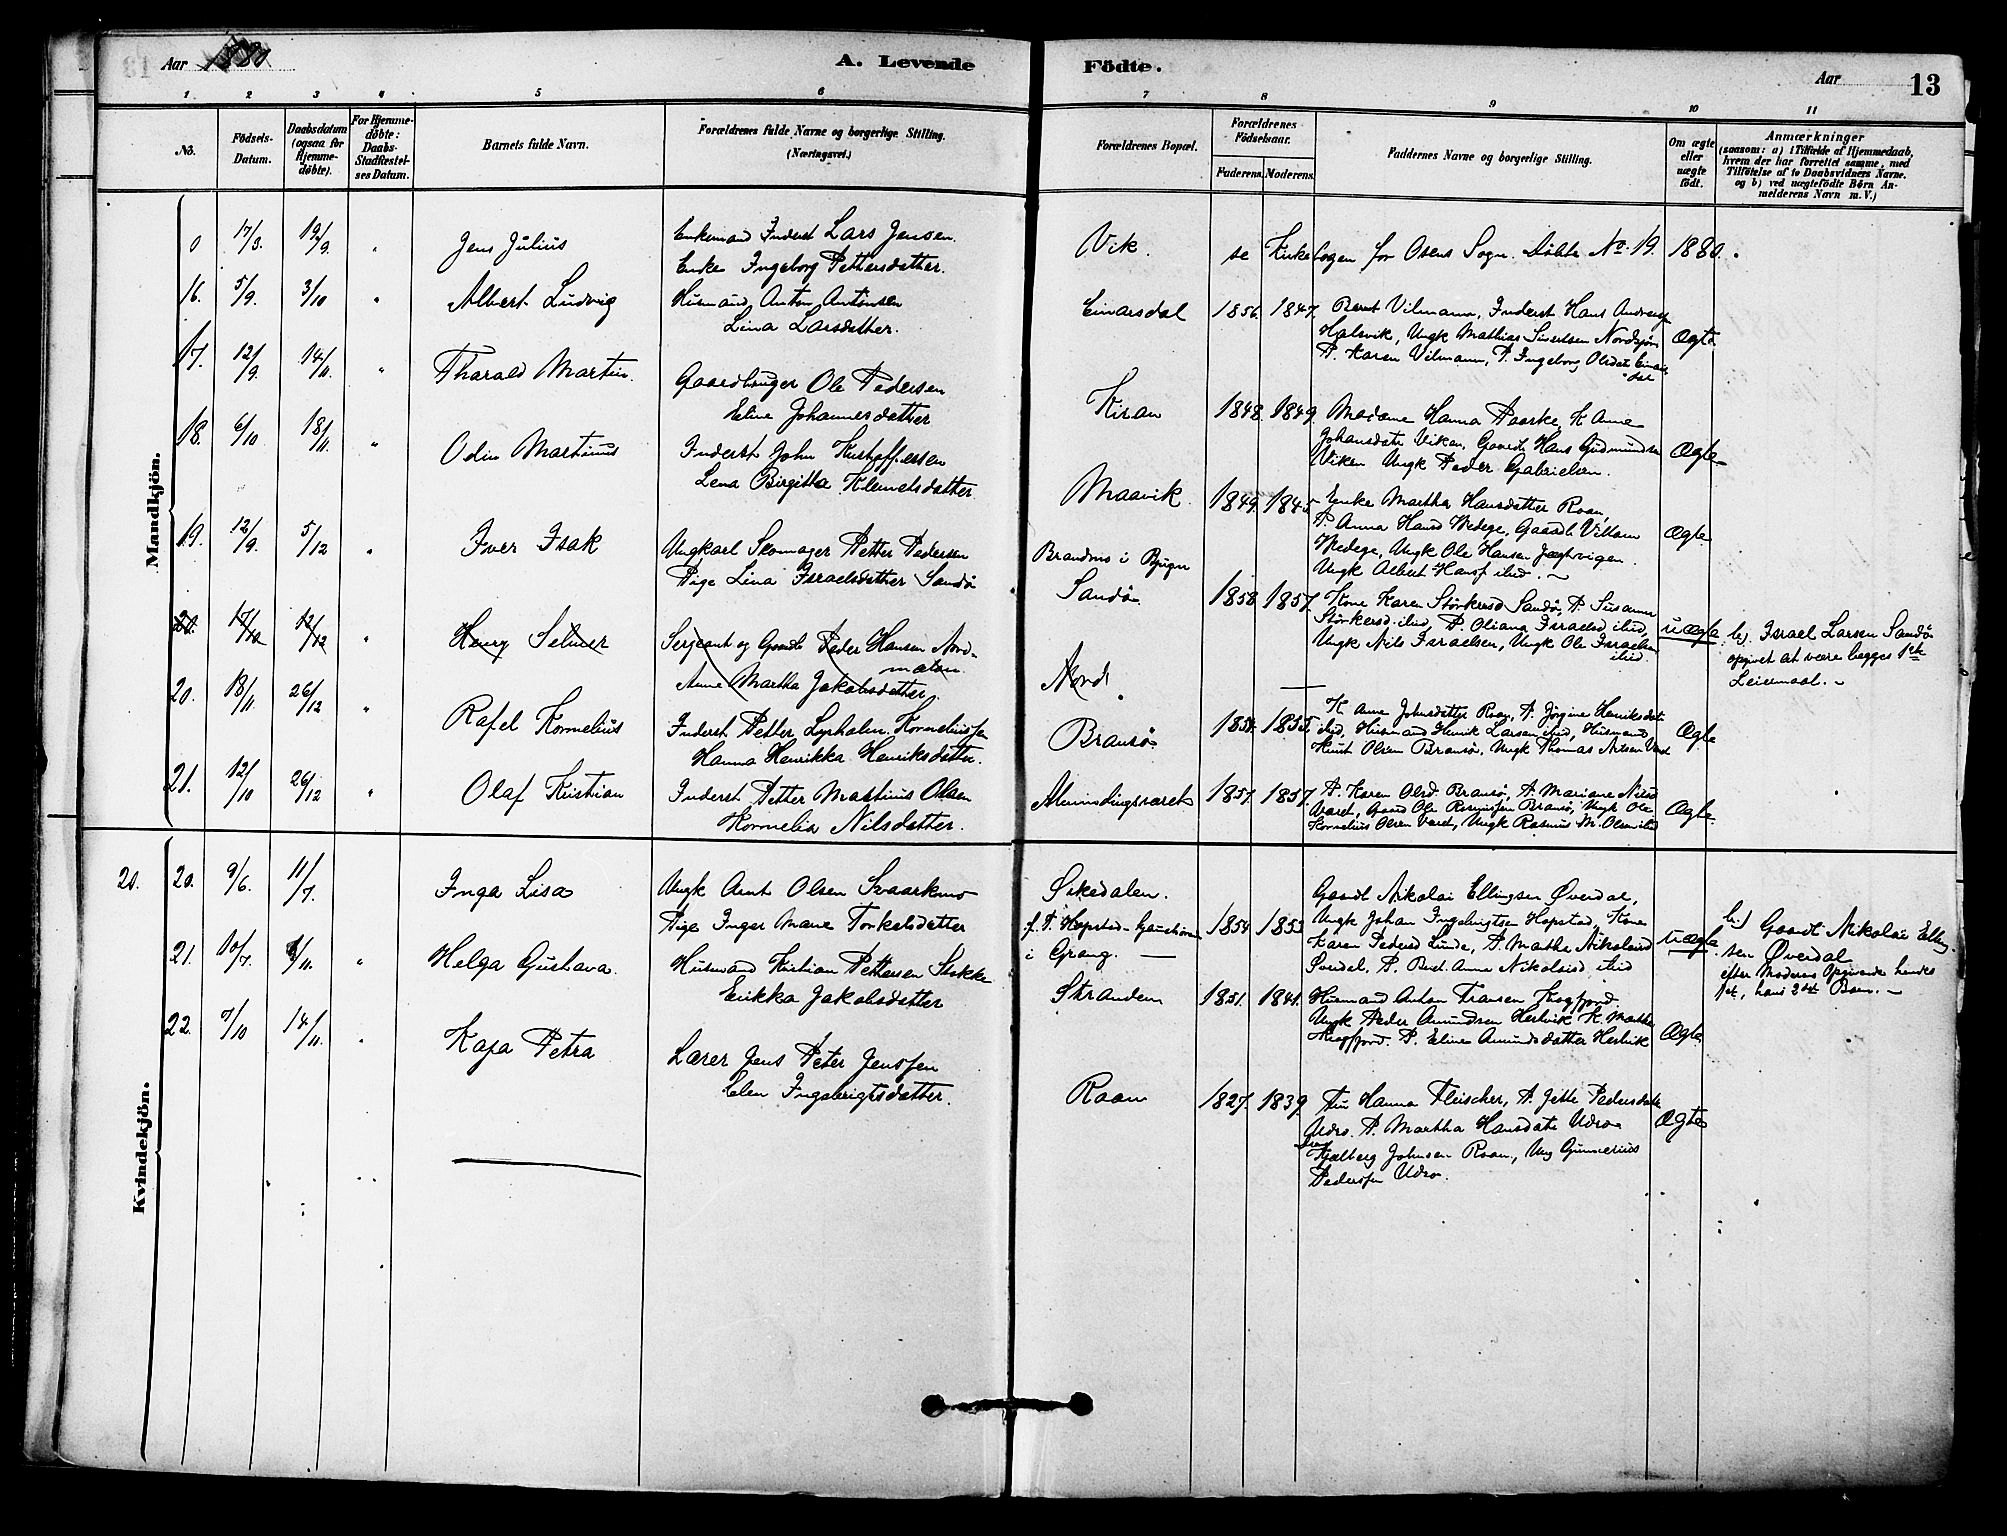 Aar 1880
A. Levende Födte.
Aar 13
1. 2 3 4 5 6 7 8 9 10 11
No. Födsels-Datum. Daabsdatum (ogsaa for Hjemme-döbte). For Hjemme-döbte: Daabs-Stadfæstel-ses Datum. Barnets fulde Navn. Forældrenes fulde Navne og borgerlige Stilling. (Næringsvei.) Forældrenes Bopæl. Forældrenes Födselsaar. Faderens. Moderens. Faddernes Navne og borgerlige Stilling. Om ægte eller uægte födt. Anmærkninger (saasom: a) i Tilfælde af Hjemmedaab, hvem der har forrettet samme, med Tilföielse af to Daabsvidners Navne. og b) ved uægtefödte Børn An-melderens Navn m.V.)
Mandkjön.
0 17/3. 19/9. " Jens Julius
Enkemand Inderst Lars Jensen
Enke Ingeborg Pettersdatter.
Vik. se Kirkebogen for Osens Sogn. Döbte No. 19. 1880.
16. 5/9. 3/10 " Albert Ludvig
Husmand Anton Antonsen
Lina Larsdatter.
Einarsdal 1856. 1847. Bernt Vilmann, Inderst Hans Andreas
Halsvik, Ungk Mathias Sivertsen Nordsjön
P. Karen Vilmann, P. Ingeborg Olsdat Einars
dal
Ægte.
17. 12/9. 14/11. " Tharald Martin.
Gaardbruger Ole Pedersen
Eline Johannesdatter
Kiran 1848. 1849. Madame Hanna Paaske, K. Anne
Johansdatr Viken, Gaardb Hans Gudmundsen
Viken Ungk Peder Gabrielsen.
Ægte
18. 6/10 18/11. " Odin Martinus
Inderst John Kristoffersen
Lena Birgitta Klemetsdatter
Maavik. 1849. 1845. Enke Martha Hansdatter Roan,
P. Anna Hansd Hedege, Gaardb Villam
Hedege, Ungk Ole Hansen Jægtvigen.
Ungk Albert Hans ibid.
Ægte
19. 12/9. 5/12 " Iver Isak
Ungkarl Skomager Petter Pedersen
Pige Lina Israelsdatter Sandö
Brandsns i Bjugn
Sandö. 1858. 1857. Kone Karen Störkersd Sandö, P. Susanna
Störkersd. ibid, P. Oliana Israelsd ibid,
Ungk Nils Israelsen, Ungk Ole Israelsen
ibid.
uægte b.) Israel Larsen Sandö
opgivet at være begges 1ste
Leiermaal.
20. 17/10 12/12 " Henry Selmer
Serjeant og Gaardb Peder Hansen Nord-
Anne Martha Jakobsdatter.
Nord
20. 18/11. 26/12 " Rafel Kornelius
Inderst Petter Kornelius
Hanna Henrikka Henriksdatter.
Bransö 1855. K. Anne Johnsdatter Roan, P. Jörgine Henriksdat
ibid, Husmand Henrik Larsen ibid, Husmand
Knut Olsen Bransö, Ungk Thomas
Ægte
21. 12/10 26/12 " Olaf Kristian
Inderst Petter Martinus Olsen
Kornelia Nilsdatter.
Almindingsvaret 1857. 1857. P. Karen Olsd. Bransö, P. Mariane Nilsd
Varet, Gaard Ole Rasmussen Bransö, Ungk Ole
Kornelius Olsen Varet, Ungk Rasmus M. Olsen ibid
Ægte.
Kvindekjön.
20. 20. 9/6. 11/7. Inga Lisa
Ungk Arnt Olsen Svaarkmo
Pige Inger Marie Torkelsdatter
Örkedalen.
i Grang. 1854. 1853 Gaardb Nikolai Ellingsen Överdal,
Ungk Johan Ingebrigtsen Hopstad, Kone
Karen Pedersd Lunde, P. Mathe Nikolaisd
Överdal, P. Anna Nikolaisd. ibid
uægte b.) Gaardb Nikolai Elling-
sen Överdal
efter Moderens Opgivende hendes
1ste, hans 2det Barn.
21. 10/7. /11. " Helga Gustava.
Husmand Kristian Pettersen Stokke
Erikka Jakobsdatter
Stranden 1851. 1841. Husmand Anton Fransen
Ungk Peder Amundsen Hestvik K. Marthe
P. Eline Amundsdatter Hestvik
Ægte.
22. 7/10 14/11. Kaja Petra
Lærer Jens Peter Jenssen
Elen Ingebrigtsdatter.
Roan 1827. 1839. Fru Hanna Fleischer, P. Jette Pedersdatr
Udro. P. Martha Hansdatr Udro
Hjalberg Johnsen Roan, Ung Gunnerius
Pederssen Udro.
Ægte